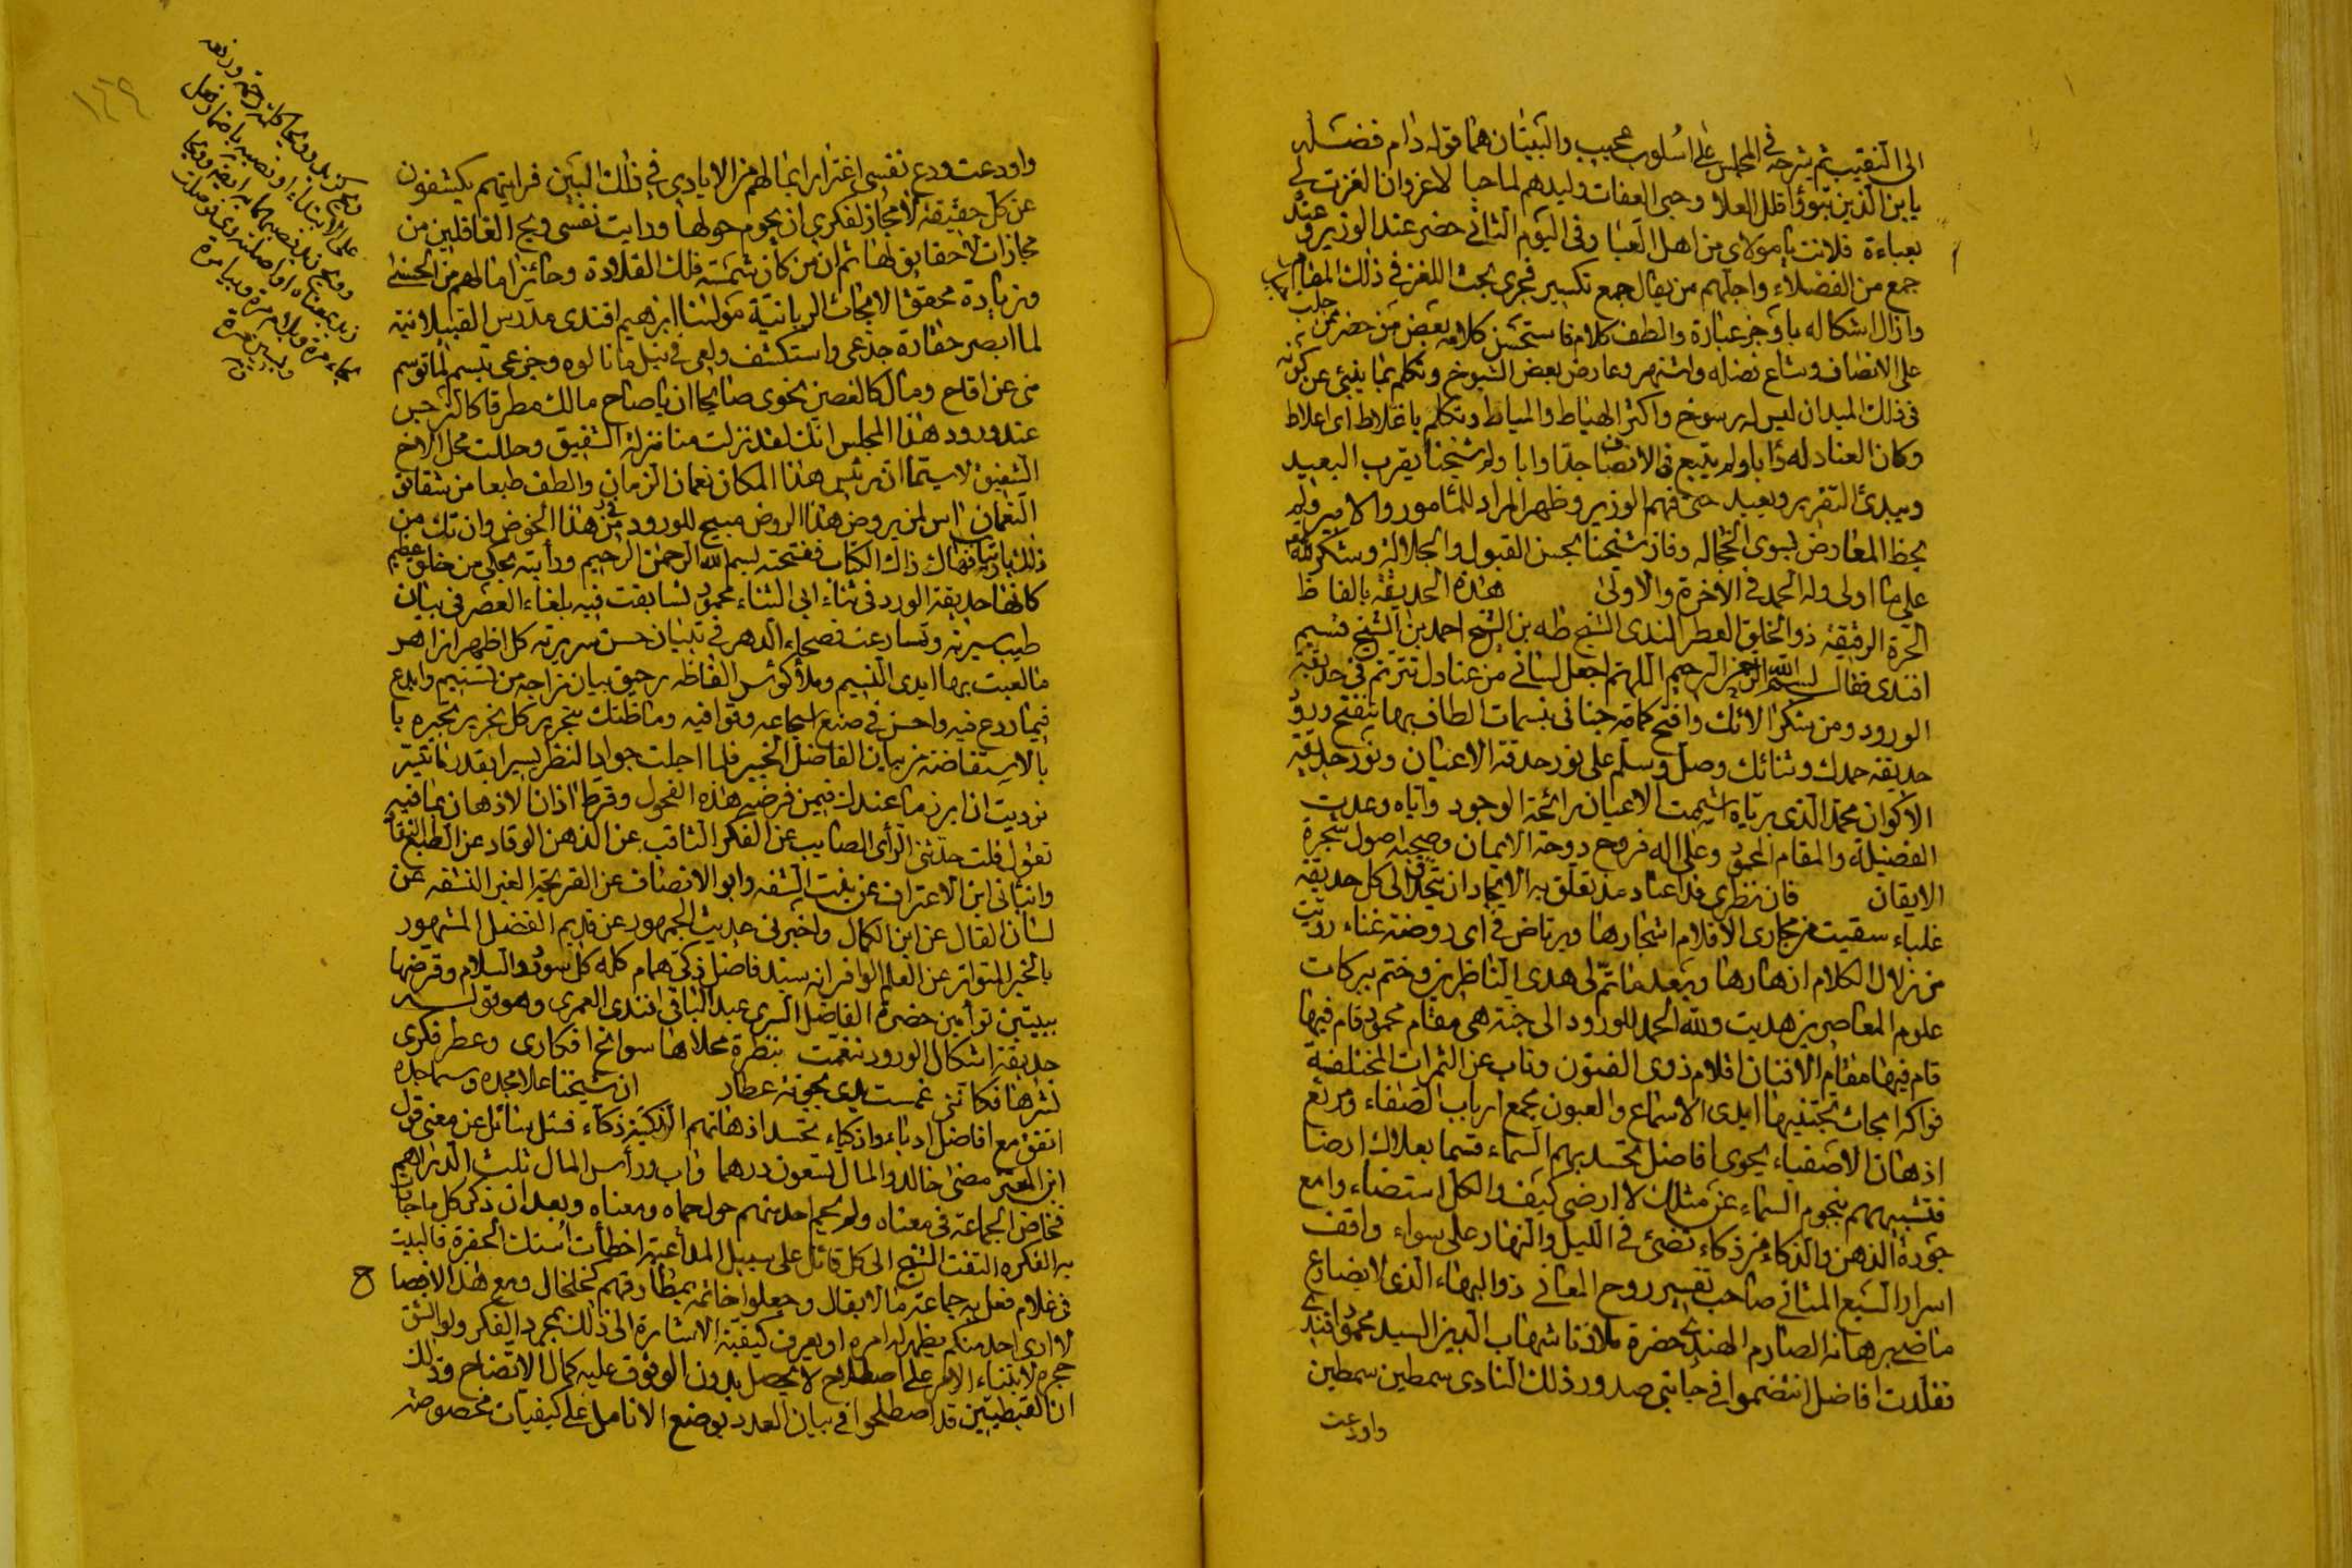 الى النقيب ثم شرحه في المجلس على اسلوب عجيب والبيتان هما قوله دام فضله
يا بن الذين تبوؤا ظلل العلا وحبى العفات وليدهم لما حبا لا غزوان الغزت لي
بعباءة فلانت يا مولاى من اهل العبا وفى اليوم الثانى حضر عند الوزير وعنده
جمع من الفضلاء واجلهم من يقال جمع تكسير فجرى بحث اللغز في ذلك المقام
وازال اشكاله باوجز عبارة والطف كلام فاستحسن كلامه بعض من حضر
على الانصاف وشاع فضله واشتهر وعارض بعض الشيوخ وتكلم بما ينبئ عن كونه
فى ذلك الميدان ليس له رسوخ واكثر الهياط والمياط وتكلم باغلاط اى اغلاط
وكان العناد له دابا ولم يتبع فى الانصاف جدا وابا ولم شيخنا يقرب البعيد
ويبدئ التقرير ويعيد حتى فهم الوزير وظهر المراد للمأمور والامير ولم
يحظ المعارض بسوى الخجاله وفاز شيخنا بحسن القبول والجلالة وشكر لله
على ما اولى وله الحمد فى الآخرة والاولى هذه الحديقة بالفاظ
الحرة الرقيقة ذو الخلق العطر الندى الشيخ طه بن الشيخ احمد بن الشيخ قسيم
افندى فقال بسم الله الرحمن الرحيم اللهم اجعل لسانى من عنادل تترنم فى حديقة
الورود ومن شكر آلائك وافتح كمامة جنانى بنسمات الطاف بها يتفتح ورود
حديقة حمدك وثنائك وصل وسلم على نور حدقة الاعيان ونور حديقة
الاكوان محمد الذى برياه اشتمت الاعيان رائحة الوجود واياه وعدت
الفضيلة والمقام المحمود وعلى اله فروح دوحة الايمان وصحبه اصول شجرة
الايقان فان نظرى قد اعتاد مذ تعلق به الايجاد ان يتحدق الى كل حديقة
غلباء سقيت من مجارى الاقلام اشجارها ويرتاض فى اى روضة غناء رويت
من زلال الكلام ازهارها وبعد ما تم لى هدى الناظرين وختم ببركات
علوم المعاصرين هديت ولله الحمد للورود الى جنة هى مقام محمود قام فيها
قام فيها مقام الافنان اقلام ذوى الفنون وناب عن الثمرات المختلفة
فواكه ابحاث تجتنيها ايدى الاسماع والعيون مجمع ارباب الصفاء ومرتع
اذهان الاصفياء يحوى افاضل تحسد بهم السماء قسما بعلاك ارضا
فتشبيههم بنجوم السماء عن مثلك لا ارضى كيف والكل استضاء وامع
جودة الذهن والذكاء من ذكاء تضئ فى الليل والنهار على سواء واقف
اسرار السبع المثانى صاحب تفسير روح المعانى ذو البهاء الذى لا يضارع
ماضى برهانه الصارم الهندى حضرة ملاذنا شهاب الدين السيد محمود افندى
فقلدت افاضل انتضموا فى جانبى صدور ذلك النادى سمطين سمطين
واودعت
١٤٩
واودعت ودع نفسى اغترارا بما لهم من الايادى فى فلك البين فرأيتهم يكشفون
عن كل حقيقة لا مجاز لفكرى ان يحوم حولها ورايت نفسى ويح الغافلين من
مجازات لا حقايق لها ثم ان من كان شمسة فلك القلادة وحائزا ما لهم من الحسنى
وزيادة محقق الابحاث الربانية مولانا ابرهيم افندى مدرس القبلانية
لما ابصر حقارة جذعى واستكشف ولعى فى نيل ما نالوه وجزعى تبسم لما توسم
منى عن اقاح ومال كالغصن نحوى صايحا ان يا صاح مالك مطرقا كالنرجس
عند ورود هذا المجلس انك لقد نزلت منا منزلة الشقيق وحللت محل الاخ
الشفيق لا سيما ان رئيس هذا المكان نعمان الزمان والطف طبعا من شقائق
النعمان ليس لمن يروض هذا الروض مبيح للورود فى هذا الخوض وان تك من
ذلك فهاك ذاك الكتاب ففتحته بسم الله الرحمن الرحيم ورأيته يحكى من خلق عظيم
كانها حديقة الورد فى ثناء ابى الثناء محمود تسابقت فيه بلغاء العصر فى بيان
طيب سيرته وتسارعت فصحاء الدهر فى تبيان حسن سريرته كل اظهر ازاهر
ما لعبت بها ايدى النسيم وملأ كؤس الفاظه رحيق بيان مزاجه من تسنيم وابدع
فيما ودع فيه واحسن فى صنع اسجاعه وقوافيه وما ظنك بتحرير كل نحرير بحيره يا
بالاستفاضة من بيان الفاضل الخبير فلما اجلت جواد النظر يسيرا بقدر ما تيسر
نوديت ان ابرز ما عندك فيمن قرضه هذه الفحول وقرط اذان الاذهان بما فيه
تقول قلت حدثنى الرأى الصايب عن الفكر الثاقب عن الذهن الوقاد عن الطبع النقاد
وانبأنى ابن الاعتراف عن بنت الشفه وابو الانصاف عن القريحة الغير النشفه عن
لسان القال عن ابن الكمال واخبرنى حديث الجمهور عن قديم الفضل المشهور
بالخبر المتواتر عن العلم الوافر انه سيد فاضل ذكى همام كله كل سودد والسلام وقرضها
ببيتين توأمين حضرة الفاضل السرى عبد الباقى افندى العمرى وهو قوله
حديقة اشكال الورود تنغمت بنظرة مجلاها سوانح افكارى وعطر فكرى
نشرها فكاننى غمست يدى بجونة عطار ان شيخنا علا مجده وسما جده
اتفق مع افاضل ادباء واذكياء تحسد اذهانهم الذكية ذكاء فسئل سائل عن معنى قول
ابن المعتز مضى خالد والمال تسعون درهما وآب ورأس المال ثلث الدراهم
فخاض الجماعة فى معناه ولم يحم احد منهم حول حماه ومعناه وبعد ان ذكر كل ما جادت
به الفكره التفت الشيخ الى كل قائل على سبيل المداعبة اخطأت استك الحفرة فالبيت
فى غلام فعل به جماعة ما لا يقال وجعلوا خاتمه بمطارقهم كخلخال ومع هذا الايضاح
لا ارى احد منكم يظهر له امره او يعرف كيفية الاشارة الى ذلك بمجرد الفكر ولو انشق
حجره لابتناء الامر على اصطلاح لا يحصل بدون الوقوف عليه كمال الاتضاح وذلك
ان القبطيين قد اصطلحوا فى بيان العدد بوضع الانامل على كيفيات مخصوصة
على الابتداء او نصبه باضمار فعل